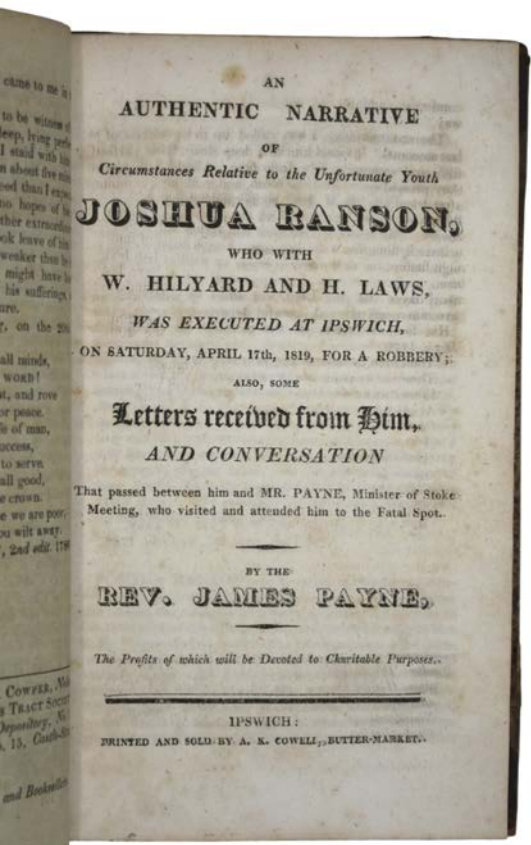 came to me in
to be witness
deep, lying
I staid with him
about five
than I
no hopes of
ther
ook leave of him
weaker than
might have
his sufferings,
ure.
on the
all minds,
WORD!
and rove
or peace.
of man,
success,
to serve.
all good,
e crown.
we are poor,
ou wilt away.
2nd edit.
COWPER,
TRACT
Depository,
15,
and
AN
AUTHENTIC NARRATIVE
OF
Circumstances Relative to the Unfortunate Youth
JOSHUA RANSON,
WHO WITH
W. HILYARD AND H. LAWS,
WAS EXECUTED AT IPSWICH,
ON SATURDAY, APRIL 17th, 1819, FOR A ROBBERY;
ALSO, SOME
Letters received from Him,
AND CONVERSATION
That passed between him and MR. PAYNE, Minister of Stoke
Meeting, who visited and attended him to the Fatal Spot.
BY THE
REV. JAMES PAYNE,
The Profits of which will be Devoted to Charitable Purposes.
IPSWICH:
PRINTED AND SOLD BY A. K. COWELL, BUTTER-MARKET.